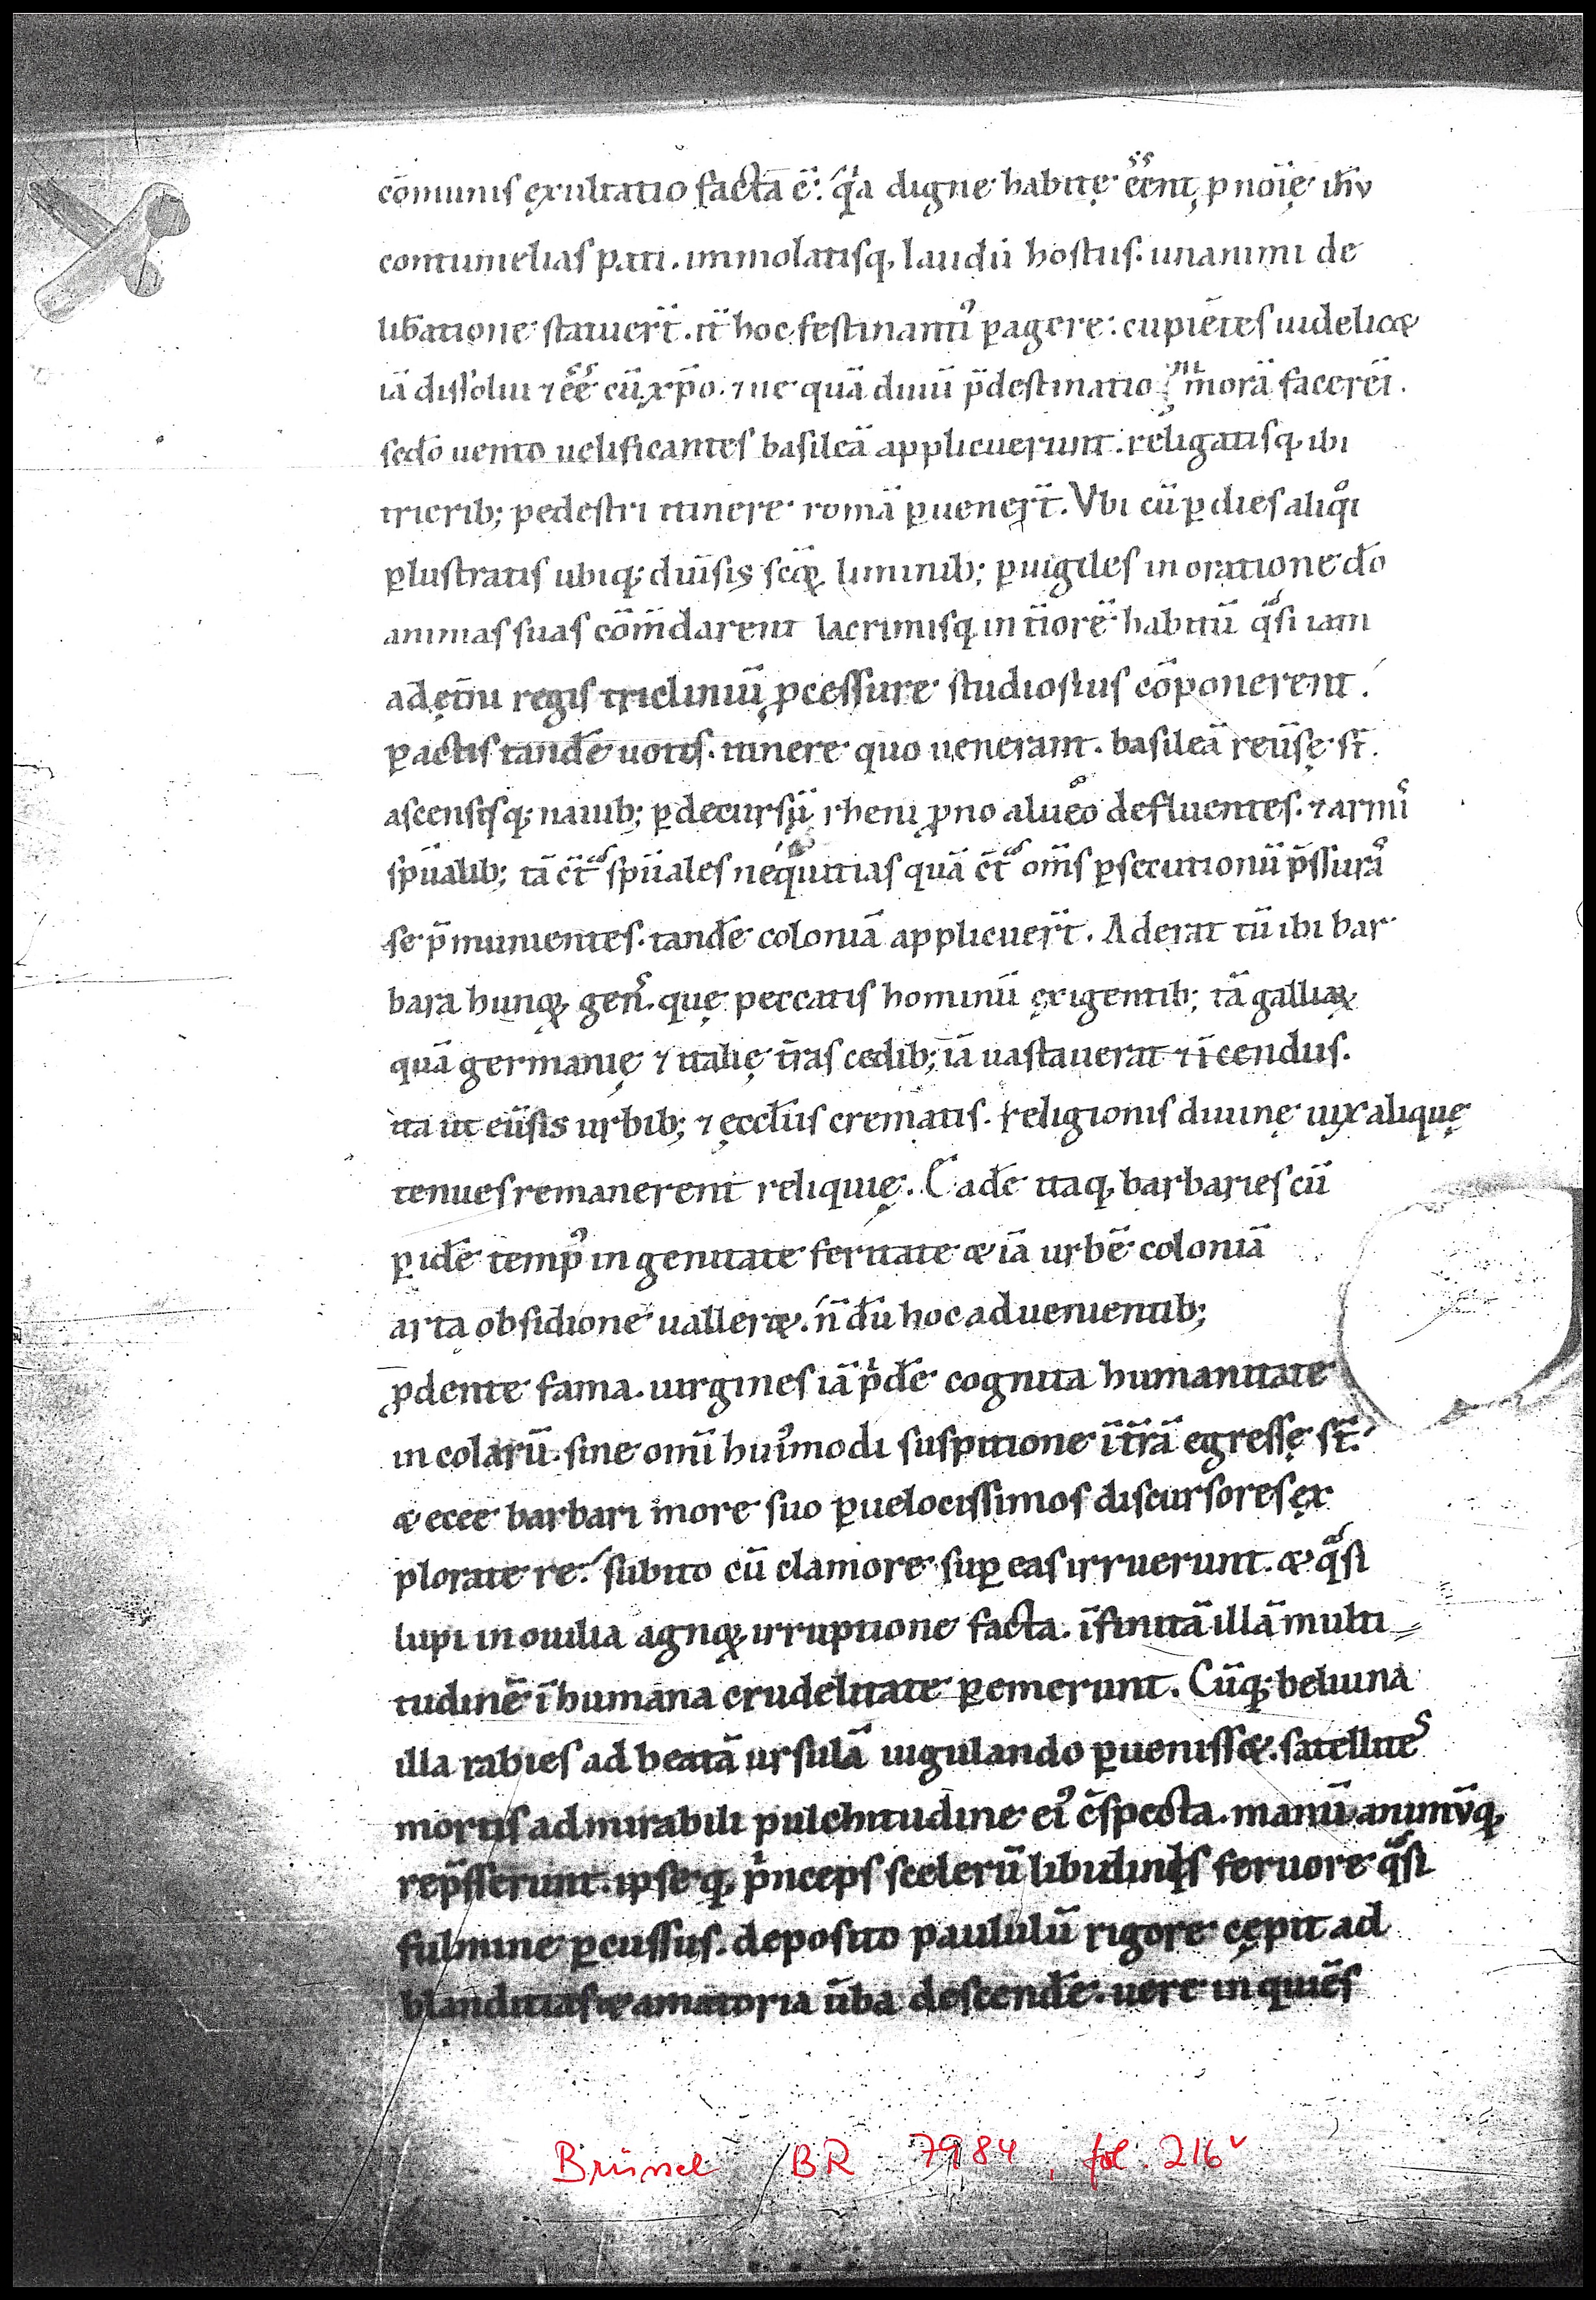 cōmunis ęxultatio facta ē. q̓a digne habitę eēnt, p noīę ihv
contumelias pati. immolatisq, laudū hostiis. unanimi de
lib̄atione statuer̄t. ƚt hoc festinanti᷒ ꝑagere. cupiētes uidelicæ
iā dissolui ⁊ eē cū xp̄o. ⁊ ne quā diuū p̄destinatio morā facerēt.
scd̄o uento uelificantes basileā applicuerunt. religatisq, ibi
trierib; pedestri itinere romā ꝑuener̄t. Vbi cū ꝑ dies aliqͦt
ꝑlustratis ubiq; diūsis scōꝝ liminib; ꝑuigiles in oratione dō
animas suas cōm̄darent lacrimisq, int̄iorē habitū qᷓsi iam
ad ęt̄ni regis tricliniū ꝓcessure studiosius cōponerent.
ꝑactis tandē uotis. itinere quo uenerant. basileā reūsę st̄.
ascensisq; nauib; ꝑ decursū rheni ꝓno alueo defluentes. ⁊ armiˢ
spūalib; tā c̄tᷓ spūales nequitias quā c̄tᷓ om̄s ꝑsecutionū p̄ssuraˢ
se p̄munientes. tandē coloniā applicuer̄t. Aderat tū ibi bar
bara hunoꝝ genˢ. quę peccatis hominū ęxigentib; tā galliaꝝ
quā germanię ⁊ italię t̄ras cedib; iā uastauerat ⁊ īcendiis.
ita ut eūsis urbib; ⁊ ęccl̄iis crematis. religionis diuinę uix aliquę
tenues remanerent reliquię. Eadē itaq, barbaries cū
ꝑ idē temp᷒ ingenitate feritate æ iā urbē coloniā
arta obsidione ualleræ. n̄dū hoc aduenientib;
ꝓdente fama. uirgines iā p̓dē cognita humanitate
incolarū. sine om̄i hui᷒modi suspitione ī t̄rā egressę st̄.
æ ecce barbari more suo ꝑ uelocissimos discursores ęx
plorate re. subito cū clamore suꝑ eas irruerunt. æ qᷓsi
lupi in ouilia agnoꝝ irruptione facta. īfinitā illā multi
tudinē īhumana crudelitate ꝑemerunt. Cūq; beluina
illa rabies ad beatā ursulā iugulando ꝑuenissæ. satelliteˢ
mortis admirabili pulchritudine ei᷒ c̄specta. manū animv̄q,
rep̄sserunt. ipseq, p̓nceps scelerū libidinis feruore qᷓsi
fulmine ꝑcussus. deposito paululū rigore cępit ad
blanditias æ amatoria ūba descendē. uere inquiēs
Brüssel BR 7984, fol. 216ᵛ